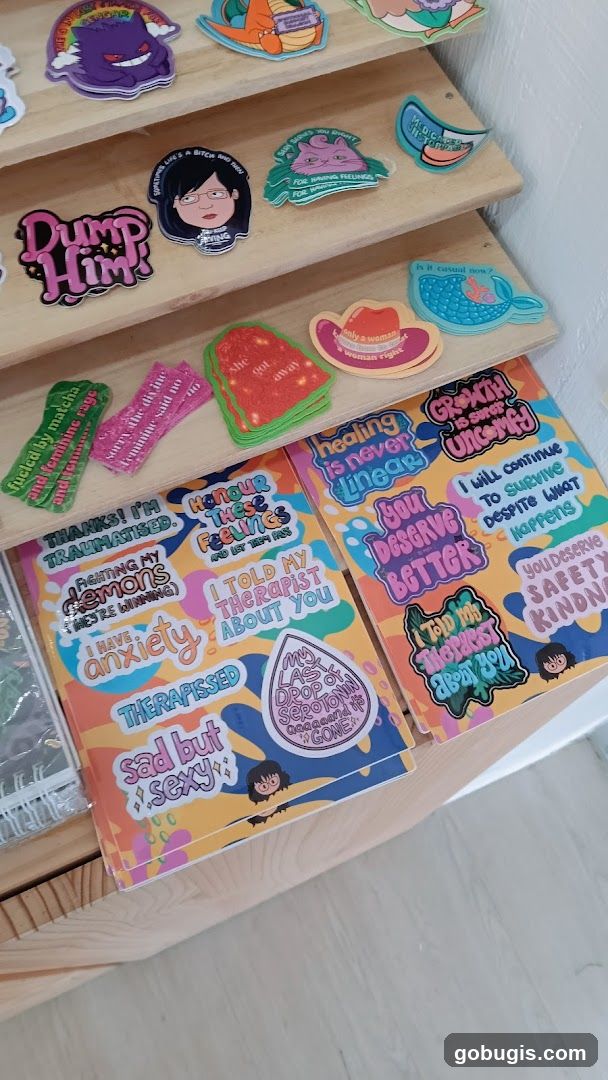 DUMP
HIM!
SOMETIMES LIFE'S A BITCH AND THEN
YOU KEEP
LIVING
FOR HAVING FEELINGS
FOR HAVING
is it casual now?
only a woman
a woman right
she
got
away
sorry, the divine
feminine said no
fueled by matcha
and feminine rage
THANKS! I'M
TRAUMATISED.
HONOUR
THESE
FEELINGS
AND LET THEM PASS
FIGHTING MY
demons
(THEY'RE WINNING)
I TOLD MY
THERAPIST
ABOUT YOU
I HAVE
anxiety
THERAPISSED
MY
LAST
DROP OF
SEROTONIN
aaaaand it's
GONE
sad but
sexy
healing
is never
linear
GROWTH
is ever
UNCOMFY
YOU
DESERVE
BETTER
I WILL CONTINUE
TO SURVIVE
DESPITE WHAT
HAPPENS
YOU DESERVE
SAFETY
KINDN
I TOLD YOU
THERAPIST
ABOUT YOU
gobugis.com